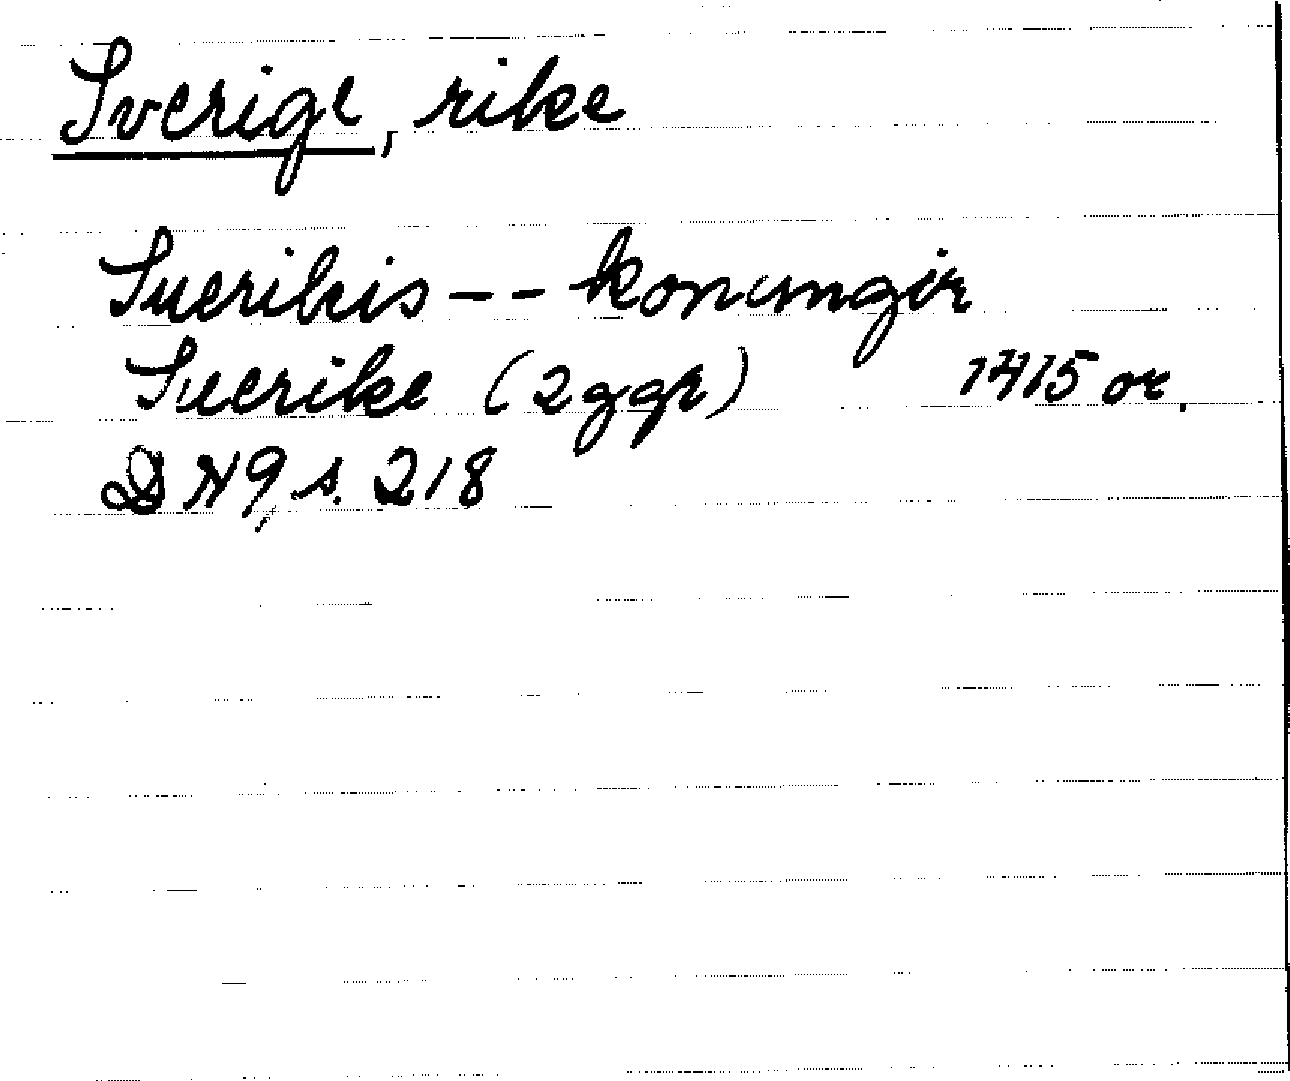 Sverige, rike
Suerikis -- konungir
Suerike (2 ggr) 1415 or.
DN 9, s. 218